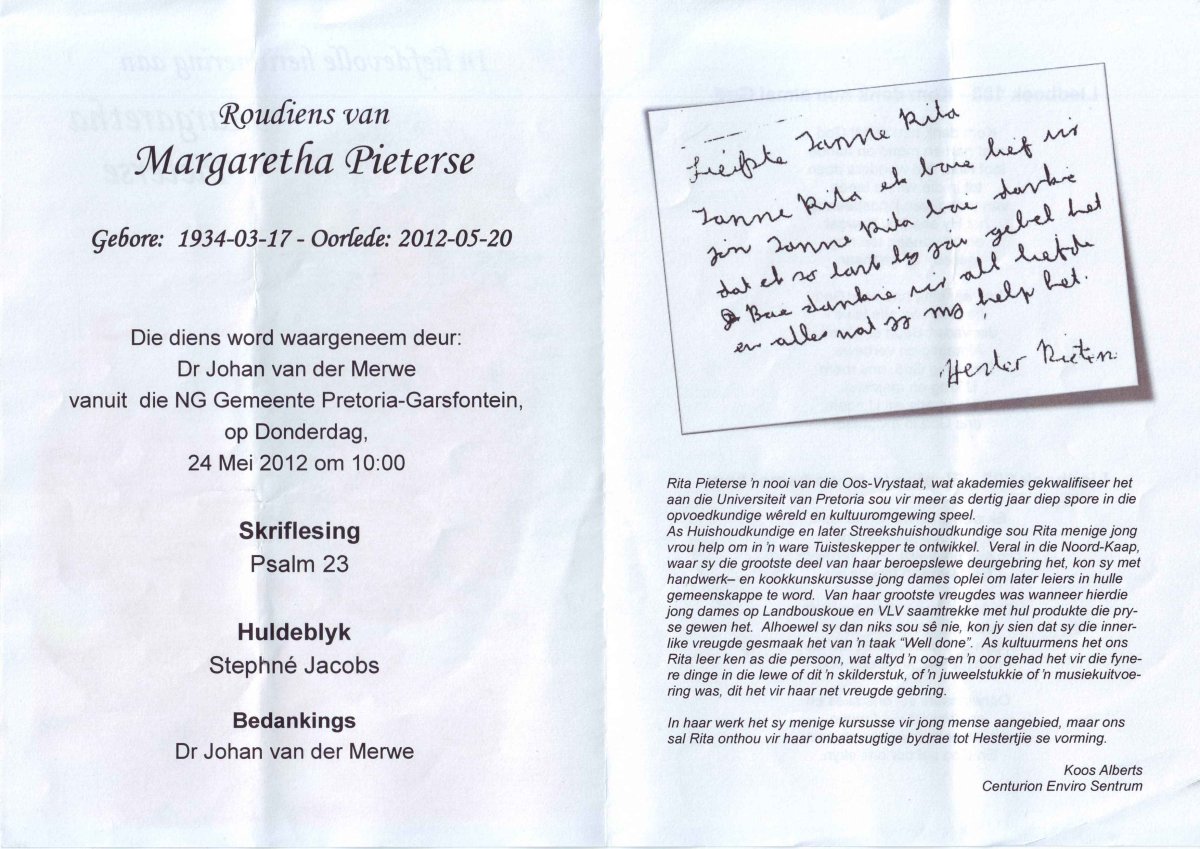 Roudiens van
Margaretha Pieterse
Gebore: 1934-03-17 - Oorlede: 2012-05-20
Die diens word waargeneem deur:
Dr Johan van der Merwe
vanuit die NG Gemeente Pretoria-Garsfontein,
op Donderdag,
24 Mei 2012 om 10:00
Skriflesing
Psalm 23
Huldeblyk
Stephné Jacobs
Bedankings
Dr Johan van der Merwe
Liefste Tannie Rita
Tannie Rita ek baie lief vir
Tannie Rita baie dankie
dat ek so lank by jou gebel het
Bae dankie vir all liefde
en alles wat jy my help het.
Hester
Rita Pieterse 'n nooi van die Oos-Vrystaat, wat akademies gekwalifiseer het
aan die Universiteit van Pretoria sou vir meer as dertig jaar diep spore in die
opvoedkundige wêreld en kultuuromgewing speel.
As Huishoudkundige en later Streekshuishoudkundige sou Rita menige jong
vrou help om in 'n ware Tuisteskepper te ontwikkel. Veral in die Noord-Kaap,
waar sy die grootste deel van haar beroepslewe deurgebring het, kon sy met
handwerk– en kookkunskursusse jong dames oplei om later leiers in hulle
gemeenskappe te word. Van haar grootste vreugdes was wanneer hierdie
jong dames op Landbouskoue en VLV saamtrekke met hul produkte die pry-
se gewen het. Alhoewel sy dan niks sou sê nie, kon jy sien dat sy die inner-
like vreugde gesmaak het van 'n taak “Well done”. As kultuurmens het ons
Rita leer ken as die persoon, wat altyd 'n oog en 'n oor gehad het vir die fyne-
re dinge in die lewe of dit 'n skilderstuk, of 'n juweelstukkie of 'n musiekuitvoe-
ring was, dit het vir haar net vreugde gebring.
In haar werk het sy menige kursusse vir jong mense aangebied, maar ons
sal Rita onthou vir haar onbaatsugtige bydrae tot Hestertjie se vorming.
Koos Alberts
Centurion Enviro Sentrum